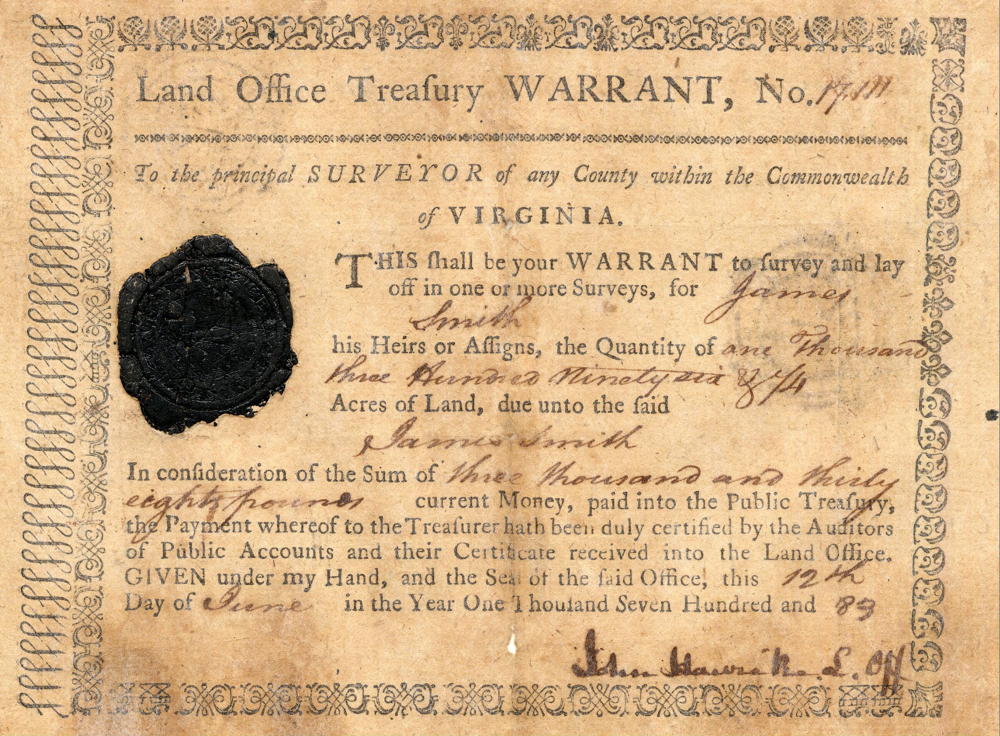 Land Office Treaſury WARRANT, No.
To the principal SURVEYOR of any County within the Commonwealth
of VIRGINIA.
THIS ſhall be your WARRANT to ſurvey and lay
off in one or more Surveys, for James
Smith
his Heirs or Aſſigns, the Quantity of one Thousand
three Hundred Ninety six &
Acres of Land, due unto the ſaid
James Smith
In conſideration of the Sum of three thousand and thirty
eight pounds current Money, paid into the Public Treaſury,
the Payment whereof to the Treaſurer hath been duly certified by the Auditors
of Public Accounts and their Certificate received into the Land Office.
GIVEN under my Hand, and the Seal of the ſaid Office, this 12th
Day of June in the Year One Thouſand Seven Hundred and 83
John R. L. Off